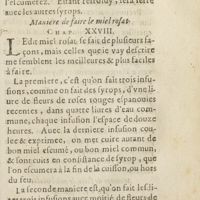 l'escumerez. Estant refroidy, sera serré
avec les autres syrops.
Maniere de faire le miel rosat.
CHAP. XXVIII.
LEdit miel rosat se fait de plusieurs fa-
çons, mais celles que ie vay descrire
me semblent les meilleures & plus faciles
à faire.
La premiere, c'est qu'on fait trois infu-
sions, comme on fait des syrops, d'vne li-
ure de fleurs de roses rouges espanouies
recentes, dans quatre liures d'eau com-
mune, chaque infusion l'espace de douze
heures. Auec la derniere infusion cou-
lee & exprimee, on met cuire autant de
bon miel escumé, ou bon miel commun,
& sont cuits en consistance de syrop, que
l'on escumera à la fin de la cuisson, ou hors
du feu.
La seconde maniere est, qu'on fait les
trois infusions auec moitié de fleurs de